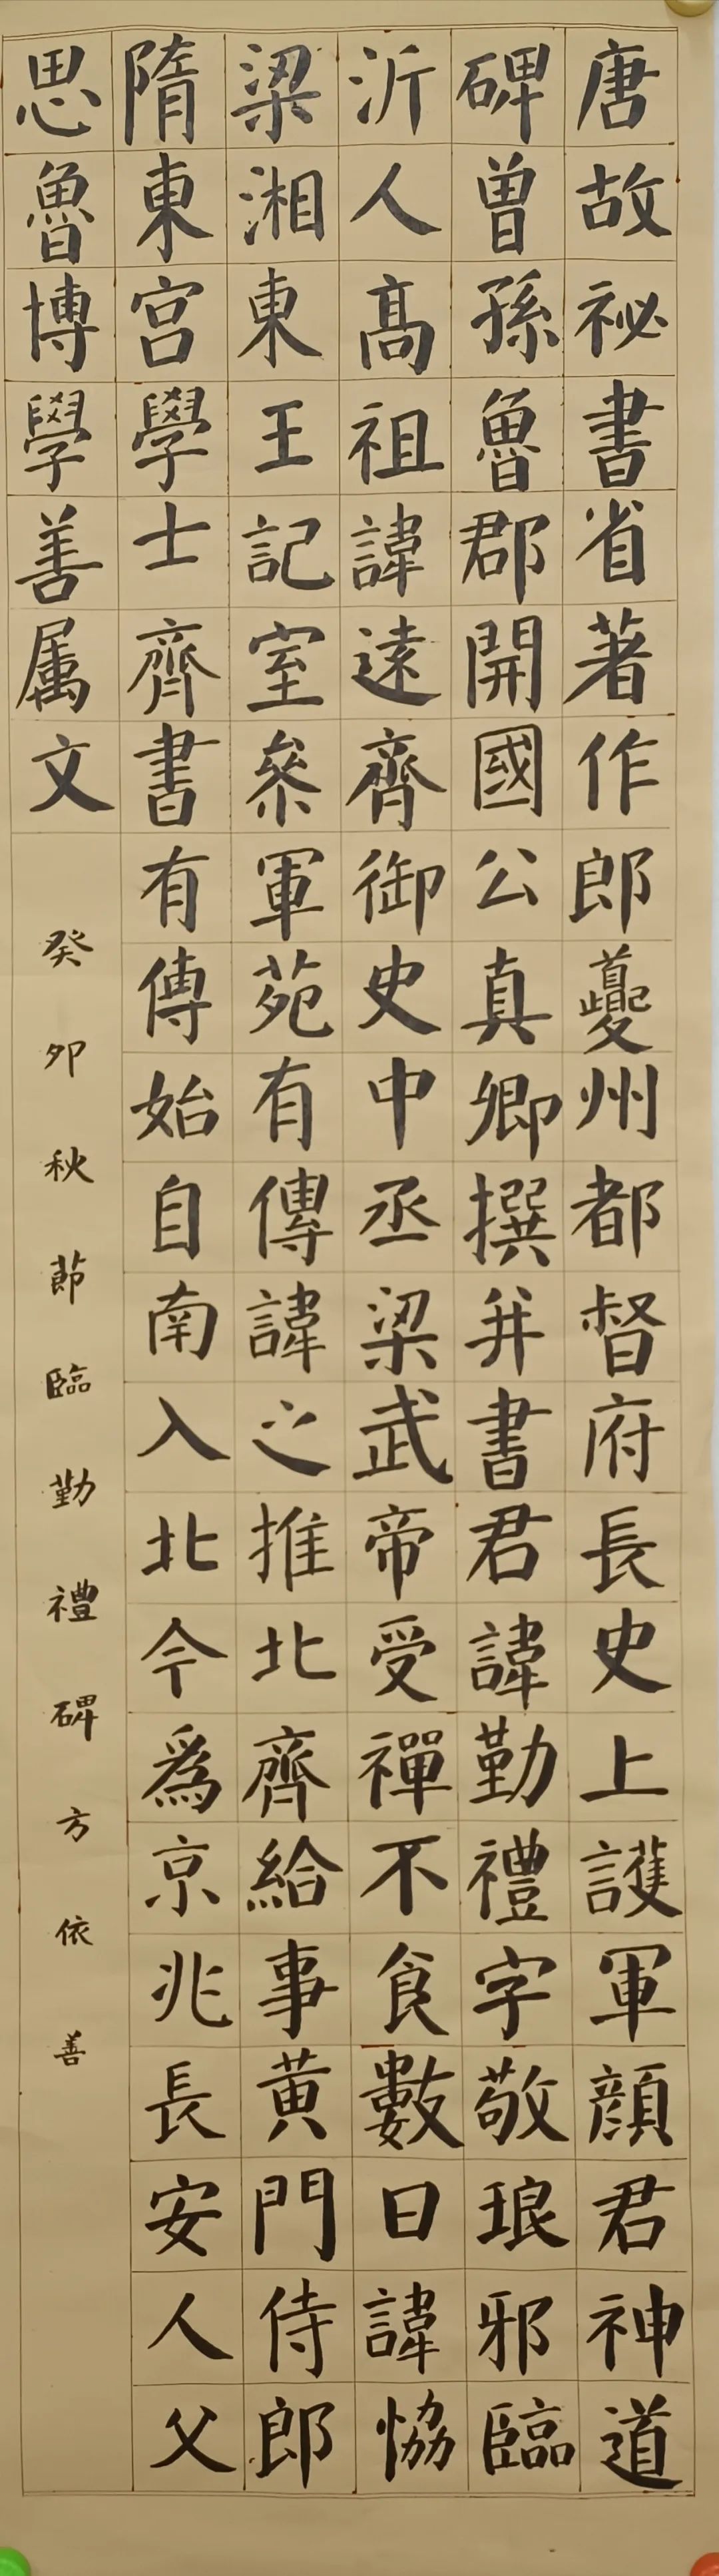 唐故祕書省著作郎夔州都督府長史上護軍顔君神道
碑曾孫魯郡開國公真卿撰并書君諱勤禮字敬琅邪臨
沂人高祖諱遠齊御史中丞梁武帝受禪不食數日諱恊
梁湘東王記室叅軍苑有傳諱之推北齊給事黄門侍郎
隋東宫學士齊書有傳始自南入北今爲京兆長安人父
思魯博學善属文
癸卯秋節臨勤禮碑方依善